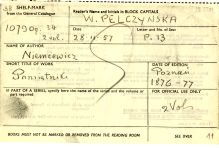 SHELF-MARK
from the General Catalogue
Reader's Name and Initials in BLOCK CAPITALS
W. PELCZYNSKA
10790 pp. 34
2 vol.
DATE
28.4.57
Letter and No. of Seat
P. 33
NAME OF AUTHOR
Niemcewicz
SHORT TITLE OF WORK
PLACE
DATE OF EDITION
Pamiętniki
Poznań
1876-77
IF PART OF A SERIES, specify here the name of the series and the volume or part required
FOR OFFICIAL USE ONLY
2 Vol
BOOKS MUST NOT BE MARKED OR REMOVED FROM THE READING ROOM
SEE OVER